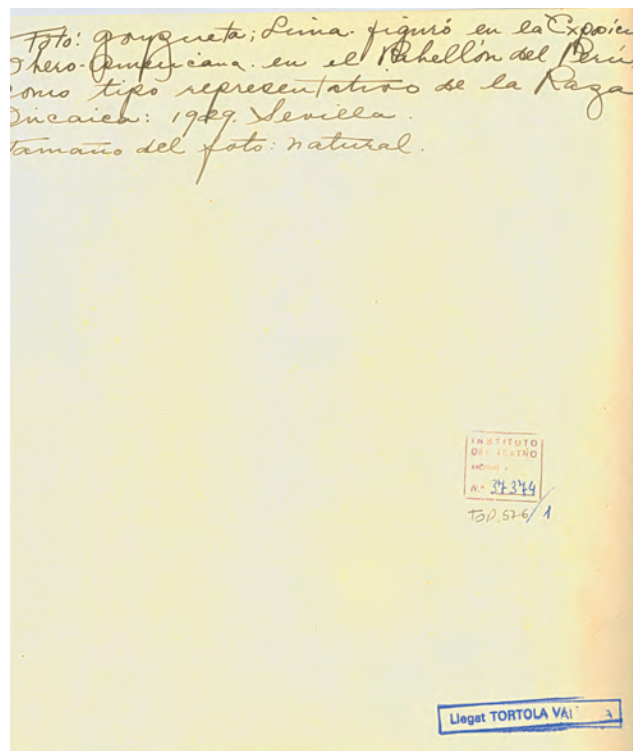 Foto: Goyzueta; Lima. figuró en la Exposici
Ibero-Americana. en el Pabellón del Perú,
como tipo representativo de la Raza
Incaica: 1929. Sevilla.
tamaño del foto: natural.
INSTITUTO
DEL TEATRO
N.º 37374
TOP. 57-6/1
Llegat TORTOLA VAL